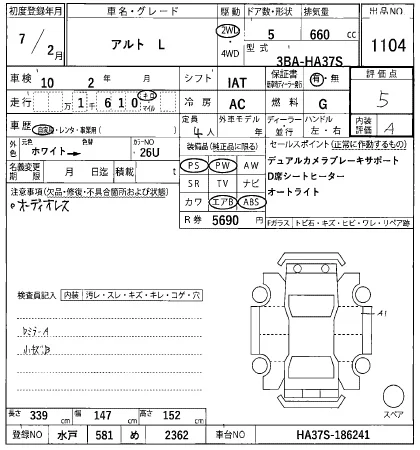 初度登録年月 車名・グレード 駆動 ドア数・形状 排気量 出品NO
7/2月 アルト L 2WD ・4WD 5 660 cc 1104
型式 3BA-HA37S
車検 10年 2月 日 シフト IAT 保証書 有・無 評価点
走行 万 1千 610 キロ マイル 冷房 AC 燃料 G 5
車歴 自家用・レンタ・事業用( ) 定員 4人 外車モデル年 年 ディーラー・並行 ハンドル 左・右 内装評価 A
外色 元色 ホワイト→ 色替 カラーNO 26U
装備品(純正品に限る) セールスポイント(正常に作動するもの)
名義変更期限 月 日迄 積載 t
PS PW AW デュアルカメラブレーキサポート
SR TV ナビ D席シートヒーター
カワ エアB ABS オートライト
注意事項(欠品・修復・不具合箇所および状態)
オーディオレス
R券 5690 円 Fガラス トビ石・キズ・ヒビ・ワレ・リペア跡
検査員記入 内装 汚レ・スレ・キズ・キレ・コゲ・穴
A1
スペア
長さ 339 cm 幅 147 cm 高さ 152 cm
登録NO 水戸 581 め 2362 車台NO HA37S-186241